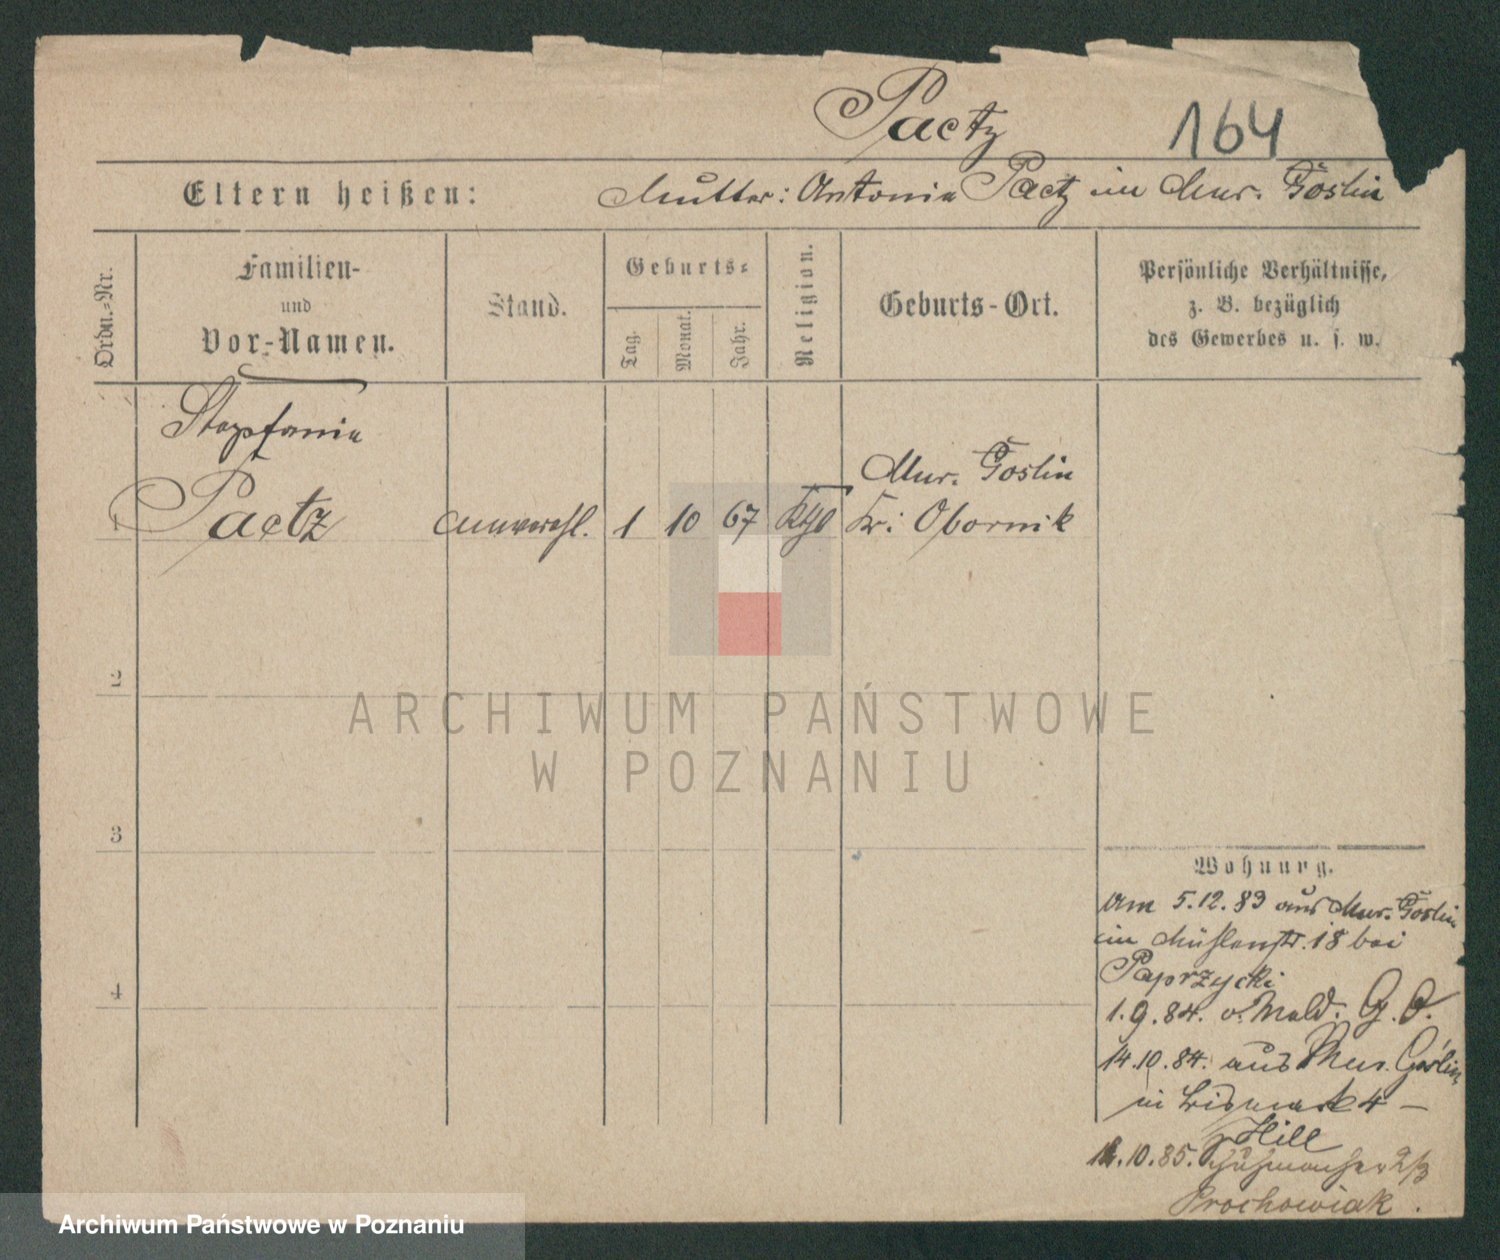 Paetz 164
Eltern heißen: Mutter: Antonie Paetz in Mur. Goslin
Ordn.-Nr.
Familien-
und
Vor-Namen.
Stand.
Geburts-
Tag.
Monat.
Jahr.
Religion.
Geburts-Ort.
Persönliche Verhältnisse,
z. B. bezüglich
des Gewerbes u. s. w.
Stepfanie
Mur. Goslin
1 Paetz unverehl. 1 10 67 Kr: Obornik
2
3
4
Wohnung.
Am 5.12.83 aus Mur. Goslin
in Mühlenstr. 18 bei
Paprzycki
1.9.84. v. Meld. G. O.
14.10.84. aus Mur. Goslin
in Bismark 4 —
Hill
10.85. Schuhmacher 2/3
Prochowiak.
ARCHIWUM PAŃSTWOWE
W POZNANIU
Archiwum Państwowe w Poznaniu